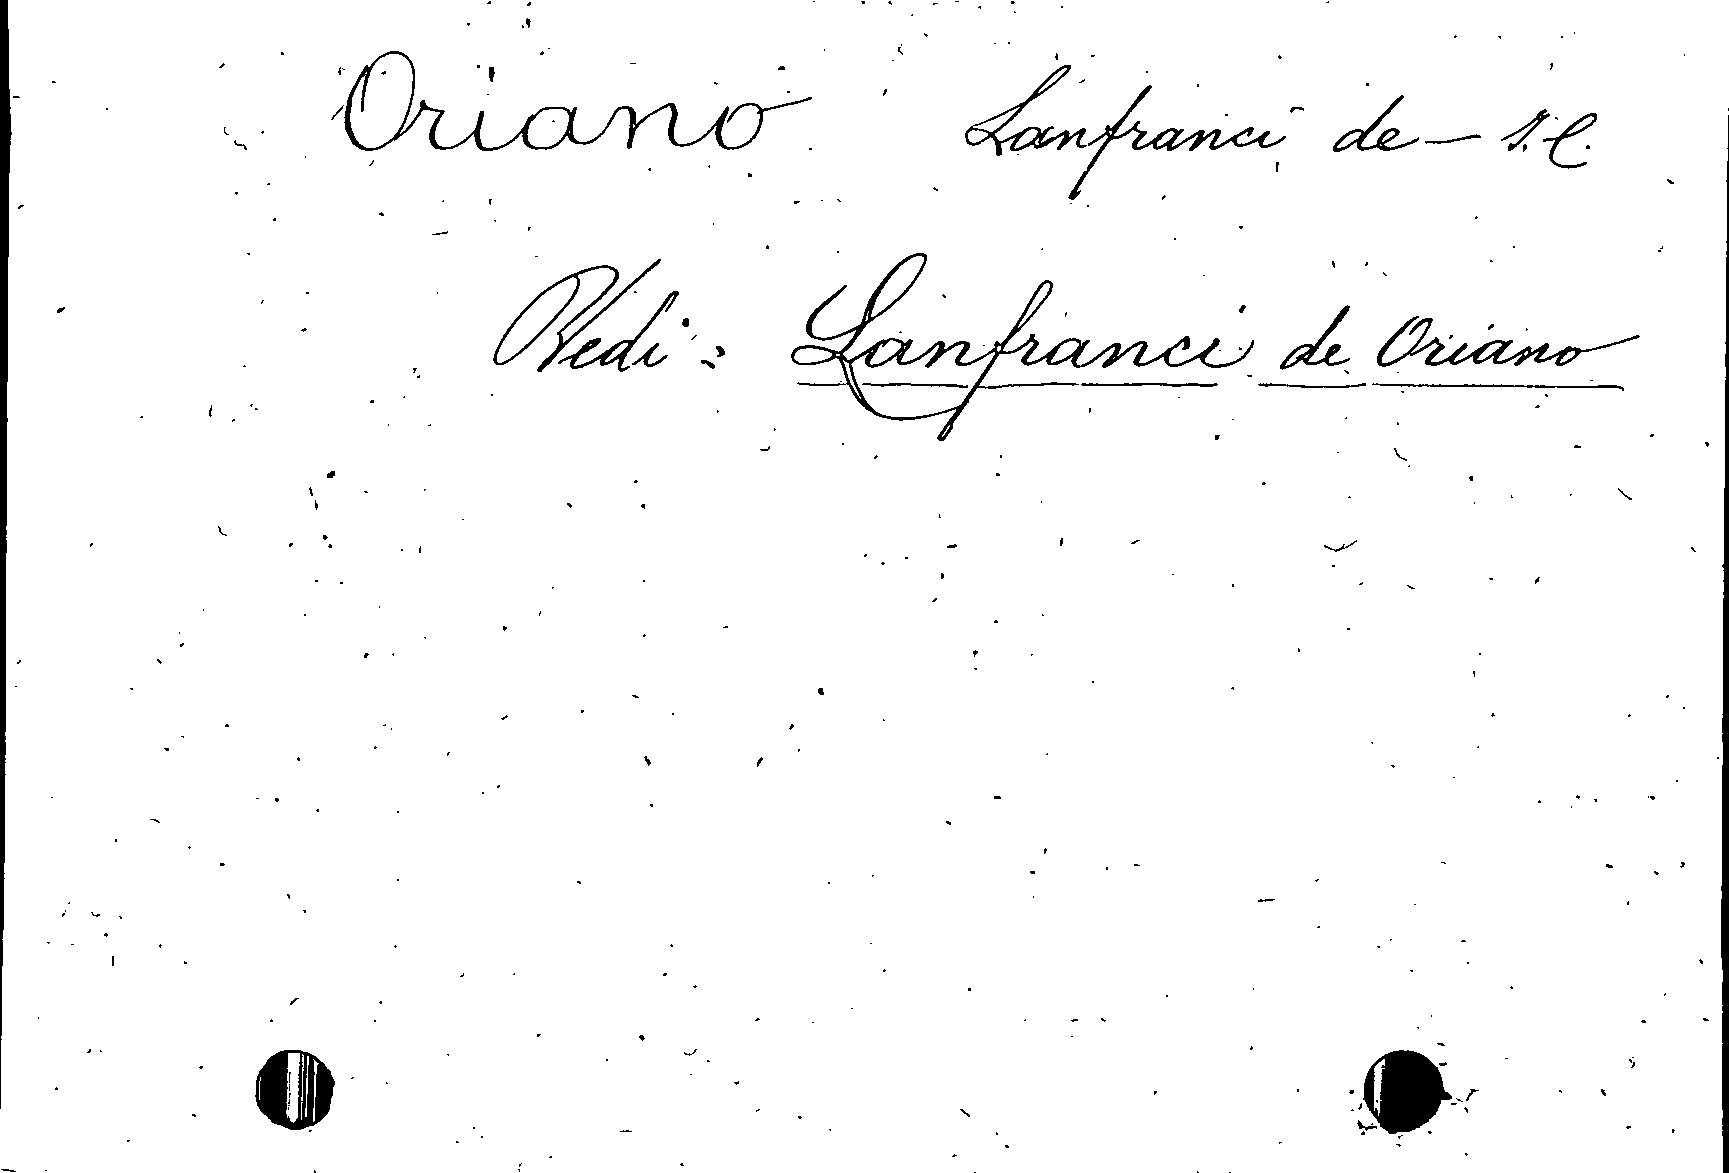 Oriano Lanfranci de — I. C.
Vedi: Lanfranci de Oriano